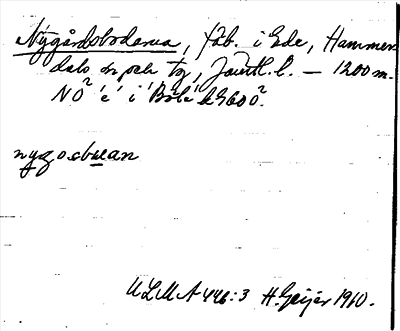 Nygårdsbodarna, fäb. i Ede, Hammer
dals sn och tg, Jämtl. l. — 1200 m.
NO² 'e' i
nygosbuan
ULMA 446:3 H. Geijer 1910.